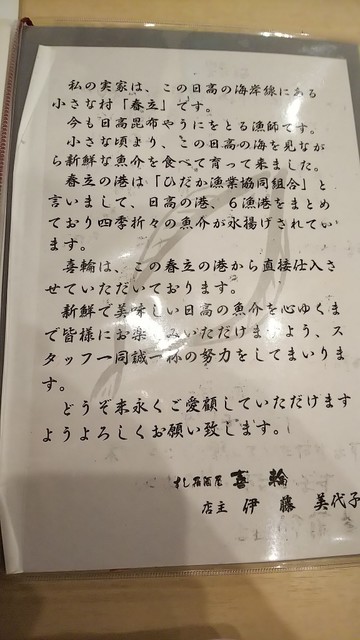 私の実家は、この日高の海岸線にある
小さな村「春立」です。
今も日高昆布やうにをとる漁師です。
小さな頃より、この日高の海を見なが
ら新鮮な魚介を食べて育って来ました。
春立の港は「ひだか漁業協同組合」と
言いまして、日高の港、6漁港をまとめ
ており四季折々の魚介が水揚げされてい
ます。
喜輪は、この春立の港から直接仕入さ
せていただいております。
新鮮で美味しい日高の魚介を心ゆくま
で皆様にお楽しみいただけますよう、ス
タッフ一同誠一杯の努力をしてまいりま
す。
どうぞ末永くご愛顧していただけます
ようよろしくお願い致します。
すし居酒屋 喜輪
店主 伊藤 美代子